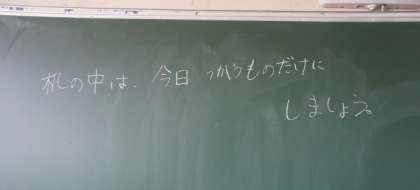 札の中は、今日 つかうものだけに
しましょう。